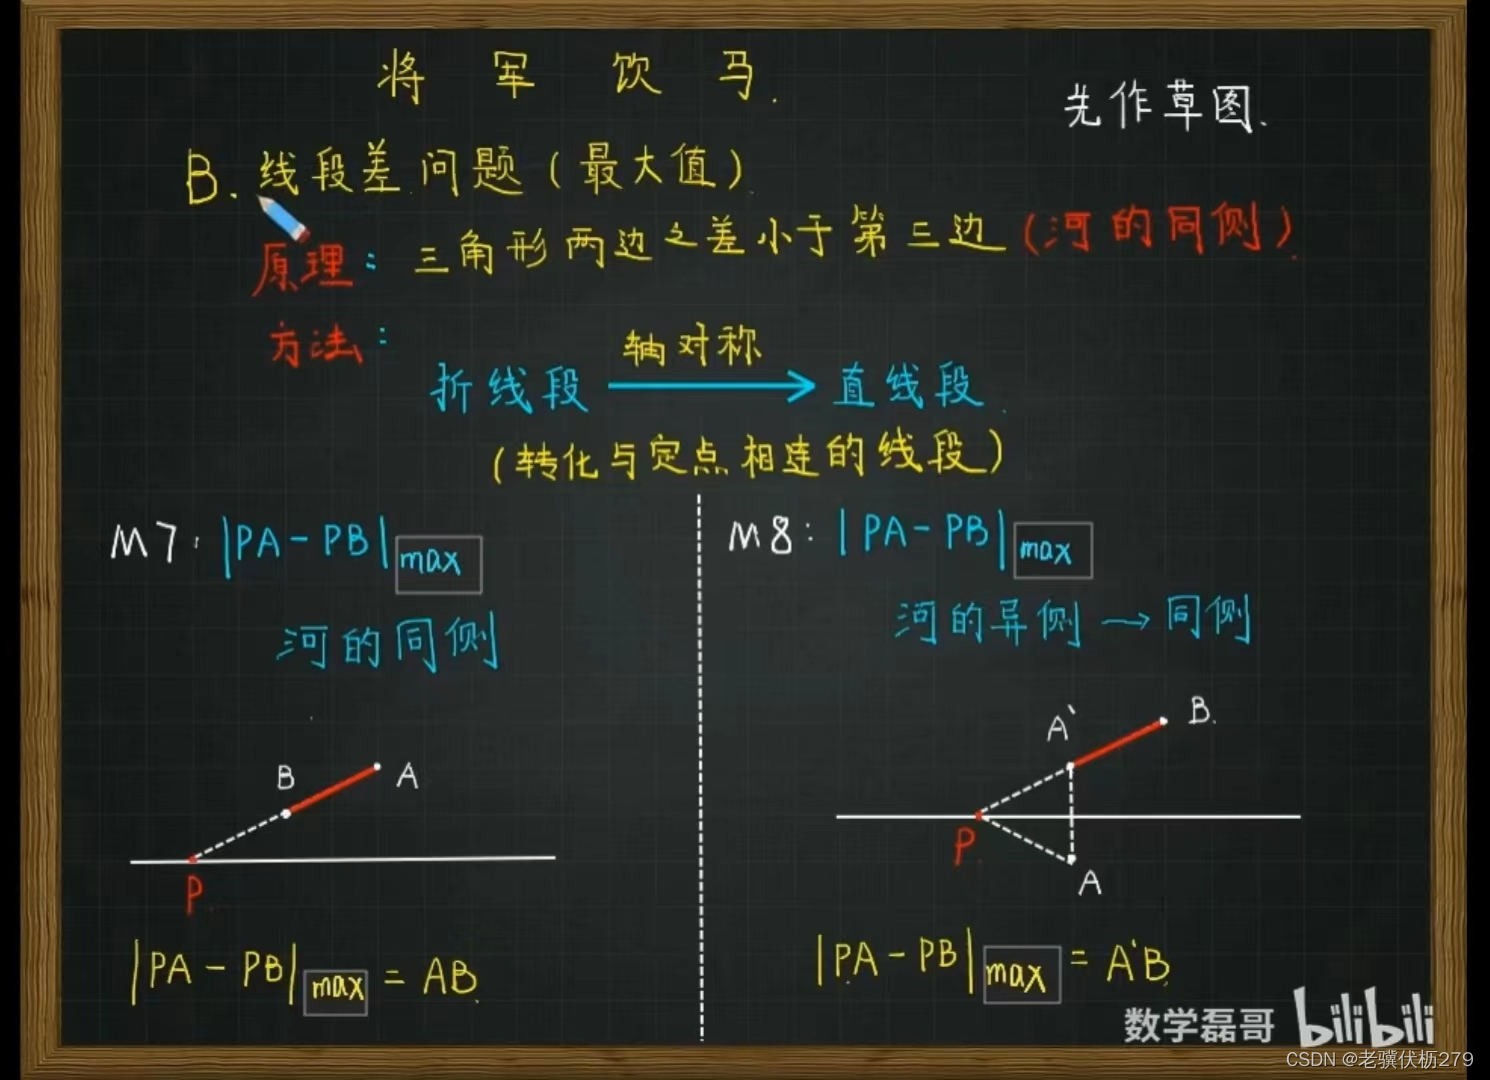 将军饮马.
先作草图.
B.线段差问题(最大值)
原理:三角形两边之差小于第三边(河的同侧)
方法:
轴对称
折线段 → 直线段
(转化与定点相连的线段)
M7:|PA-PB|max
河的同侧
B A
P
|PA-PB|max=AB
M8:|PA-PB|max
河的异侧→同侧
A` B.
P
A
|PA-PB|max=A`B
数学磊哥 bilibili
CSDN @老骥伏枥279